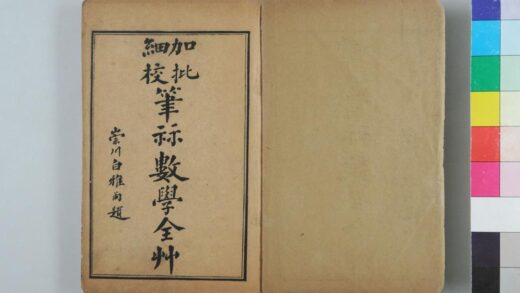 加批
細校
筆祘數學全艸
崇川白雅雨題